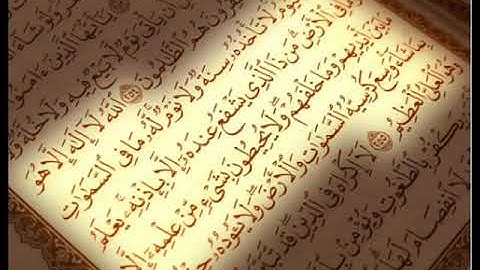 يَٰٓأَيُّهَا ٱلَّذِينَ ءَامَنُوٓا۟
يَأْتِىَ يَوْمٌ لَّا بَيْعٌ فِيهِ وَلَا خُلَّةٌ
هُمُ ٱلظَّٰلِمُونَ ٢٥٤ ٱللَّهُ لَآ إِلَٰهَ إِلَّا هُوَ
تَأْخُذُهُۥ سِنَةٌ وَلَا نَوْمٌ لَّهُۥ مَا فِى ٱلسَّمَٰوَٰتِ
ٱلْأَرْضِ مَن ذَا ٱلَّذِى يَشْفَعُ عِندَهُۥٓ إِلَّا بِإِذْنِهِۦ يَعْلَمُ
مَا بَيْنَ أَيْدِيهِمْ وَمَا خَلْفَهُمْ وَلَا يُحِيطُونَ بِشَىْءٍ مِّنْ عِلْمِهِۦٓ إِلَّا
بِمَا شَآءَ وَسِعَ كُرْسِيُّهُ ٱلسَّمَٰوَٰتِ وَٱلْأَرْضَ وَلَا يَـُٔودُهُۥ
وَهُوَ ٱلْعَلِىُّ ٱلْعَظِيمُ ٢٥٥ لَآ إِكْرَاهَ فِى ٱلدِّينِ قَد تَّبَيَّنَ
يَكْفُرْ بِٱلطَّٰغُوتِ وَيُؤْمِنۢ
لَا ٱنفِصَامَ لَهَا